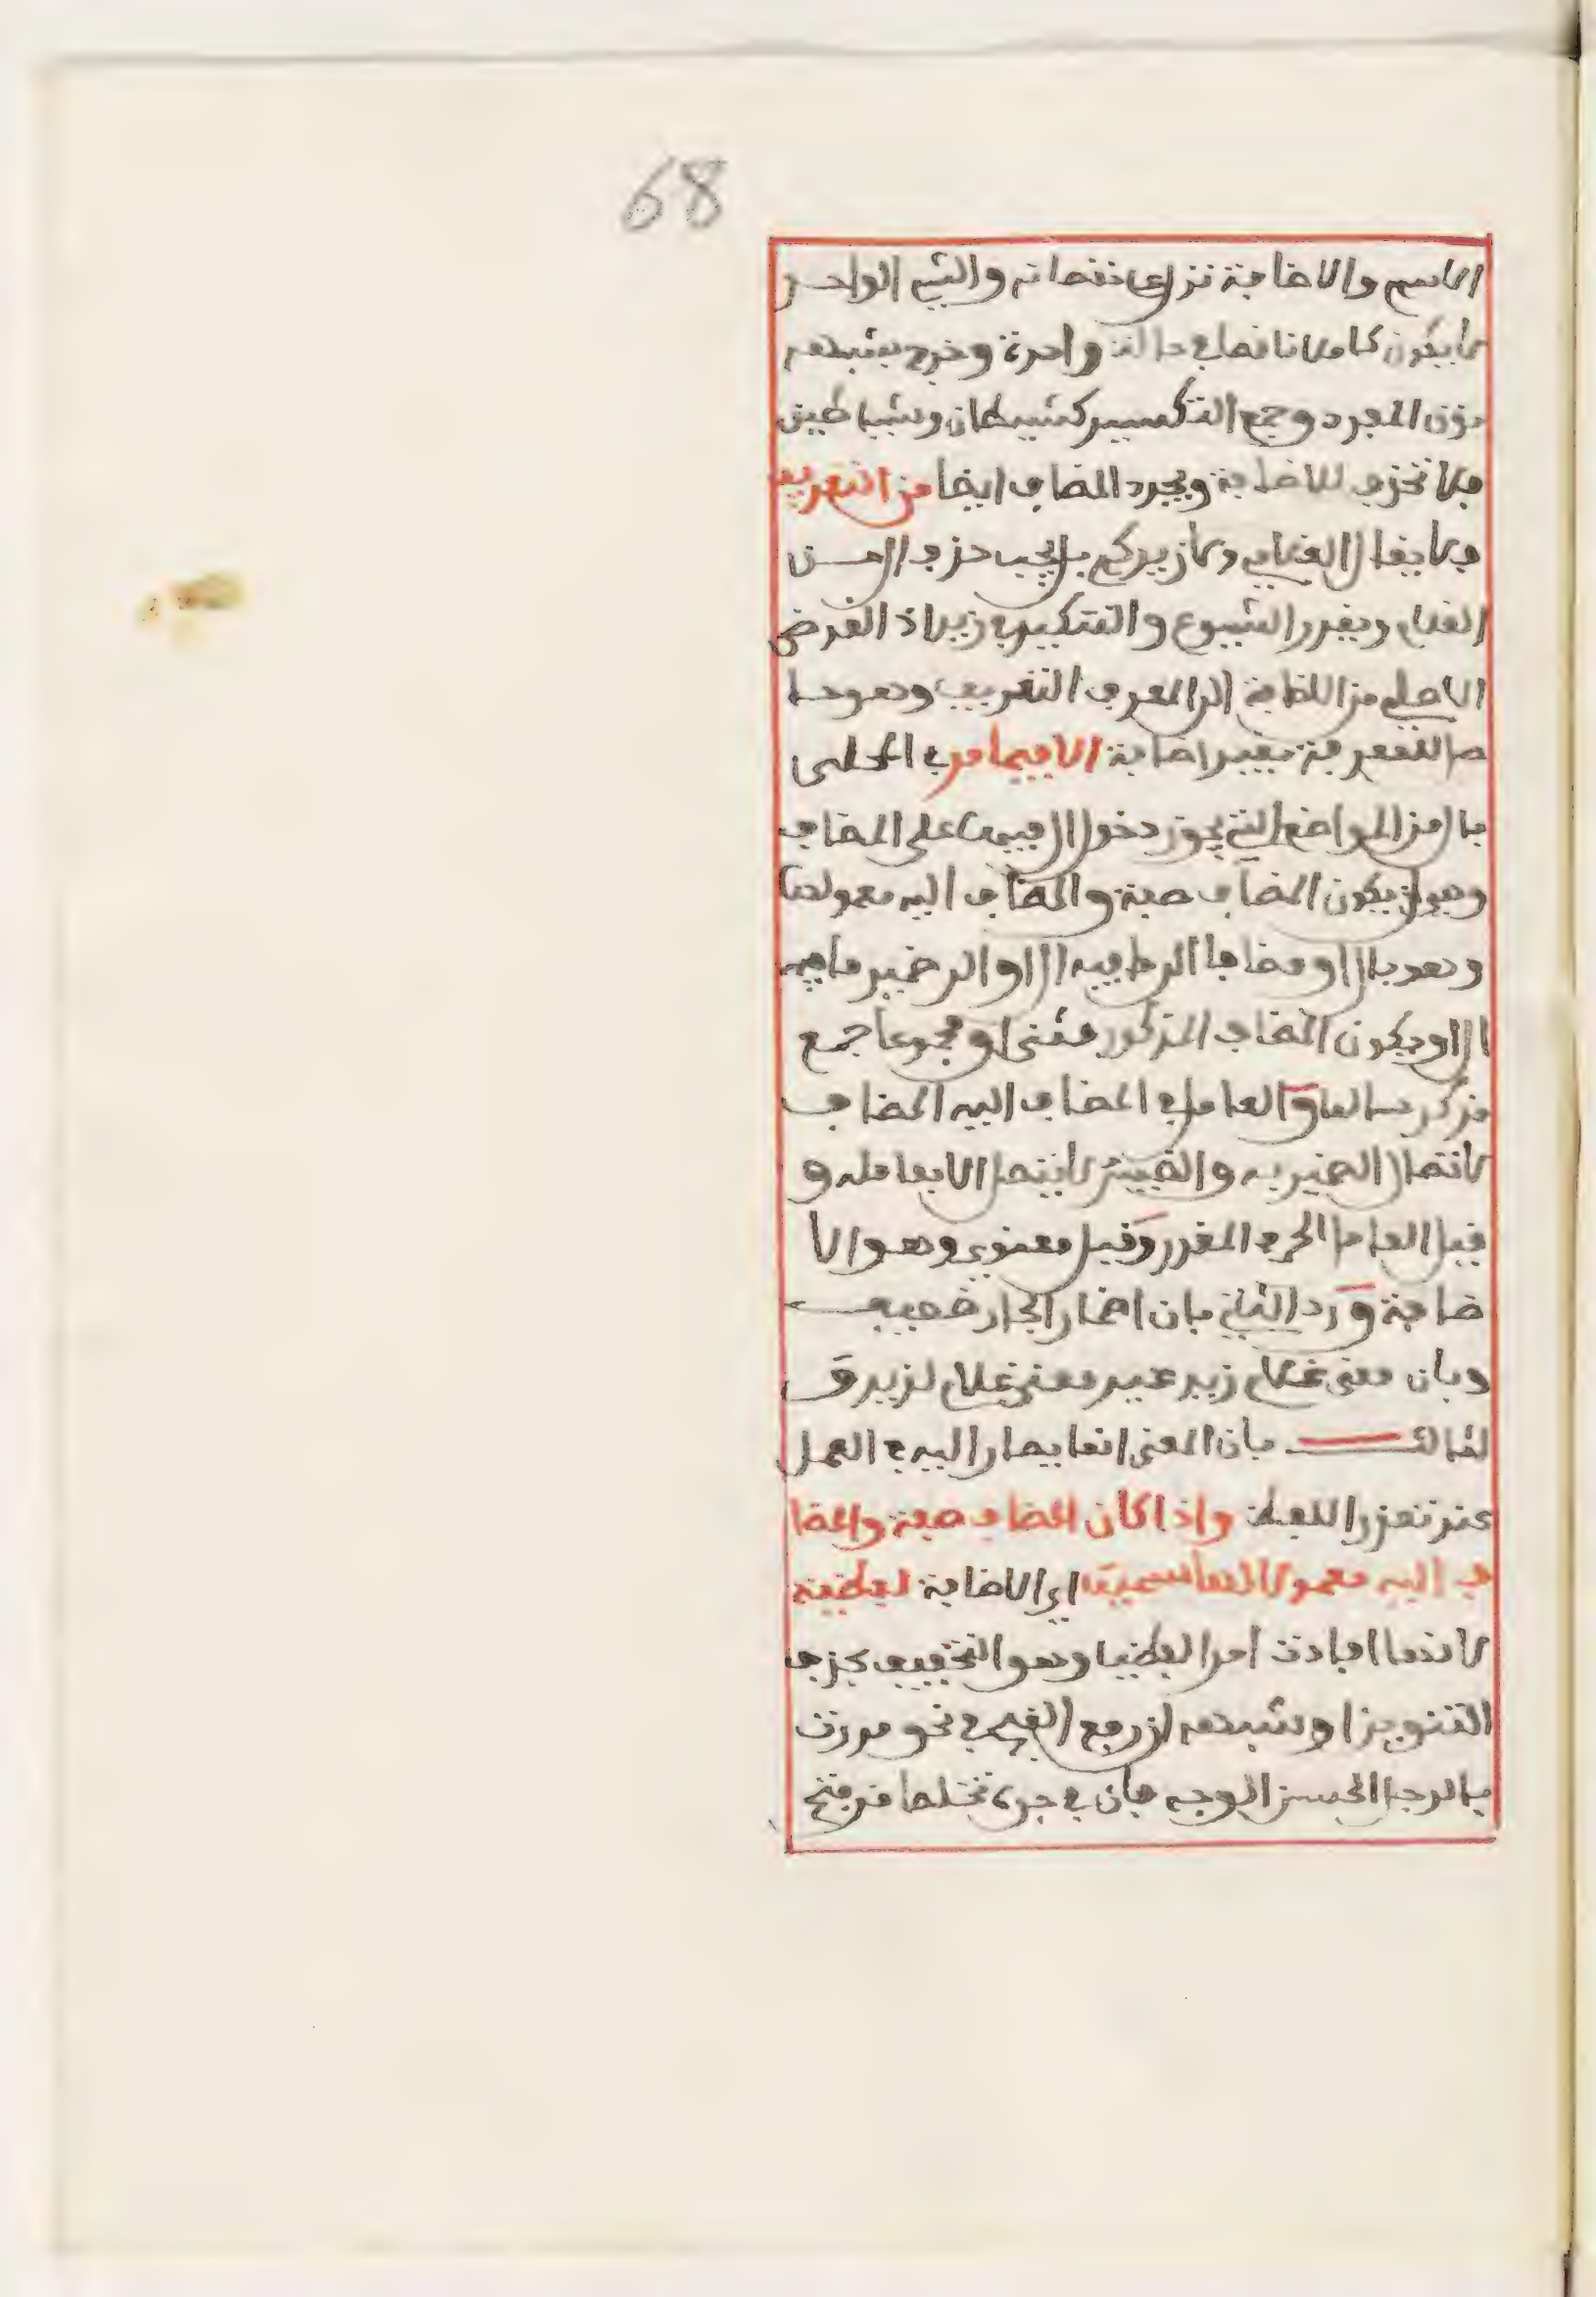 68
الاسم والاضافة تدل على نقصانه والشيء الواحد
لا يكون كاملا ناقصا في حالة واحدة وخرج بشبهه
نون المفرد وجمع التكسير كشيطان وشياطين
فلا تحذف للاضافة ويجرد المضاف ايضا من التعريف
فلا يقال الغلامي ولا زيدكم بل يجب حذف ال من
الغلام ويقدر الشيوع والتنكير في زيد اذ الغرض
الاصلي من الاضافة الى المعرف التعريف وهو حا
صل للمعرفة بغير اضافة الا فيما مر في المحلى
بال من المواضع التي يجوز دخول ال فيها على المضاف
وهو ان يكون المضاف صفة والمضاف اليه معمولها
وهو بال او مضافا الى ما فيه ال او الى ضمير ما فيه
ال او يكون المضاف المذكور مثنى او مجموعا جمع
مذكر سالما والعامل في المضاف اليه المضاف
لاتصال الضمير به والضمير لا يتصل الا بعامله و
قيل العامل الحرف المقدر وقيل معنوي وهو الا
ضافة ورد الثاني بان اضمار الجار ضعيف
وبان معنى غلام زيد غير معنى غلام لزيد و
الثالث بان المعنى انما يصار اليه في العمل
عند تعذر اللفظ واذا كان المضاف صفة والمضا
ف اليه معمولا لها سميت اي الاضافة لفظية
لانها افادت امرا لفظيا وهو التخفيف بحذف
التنوين او شبهه او رفع القبح في نحو مررت
بالرجل الحسن الوجه فان في جره تخلصا من قبح